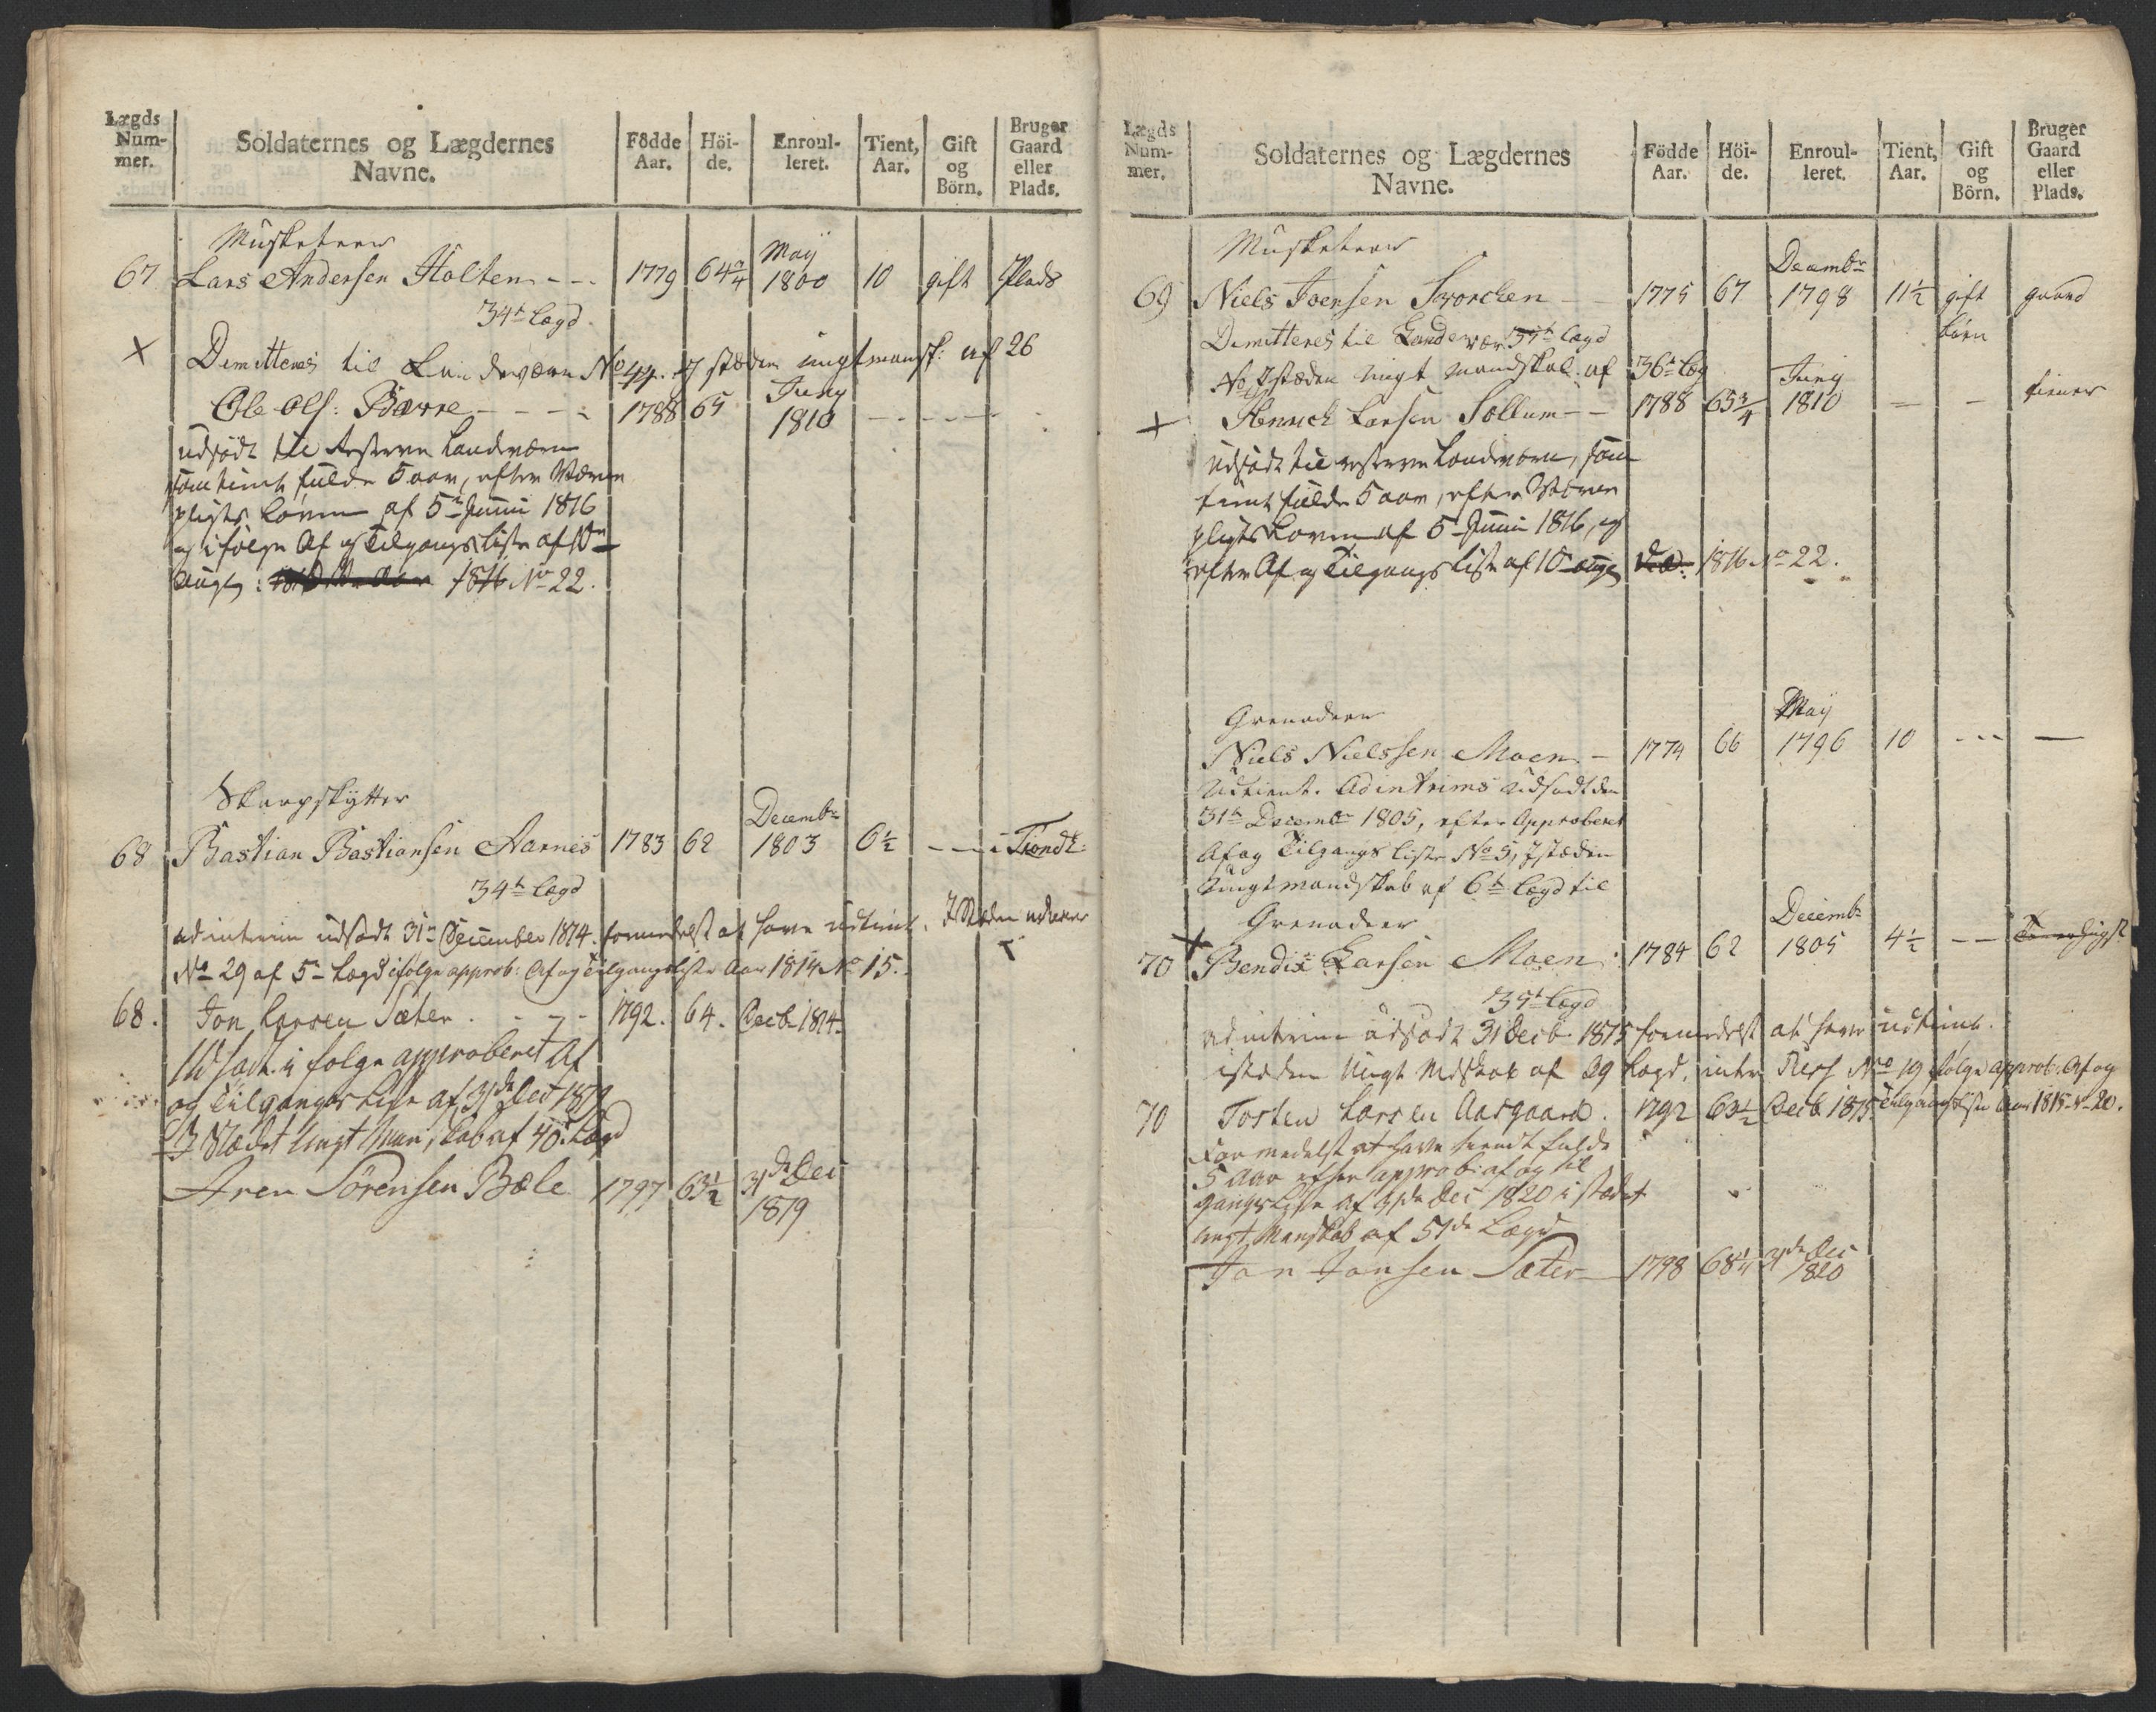 Lægds Num-mer. | Soldaternes og Lægdernes Navne. | Födde Aar. | Höi-de. | Enroul-leret. | Tient, Aar. | Gift og Börn. | Bruger Gaard eller Plads.
Musketeer
67 Lars Andersen Holten - - - 1779 64 3/4 May 1800 10 gift Plads
34te Lægd
Demitteres til Landeværn No 44. I stæden ungt mansk: af 26
Ole Ols: Bærre - - - - 1788 65 Juny 1810 - - - - -
udsadt til Reserve Landværn
som tient fulde 5 aar, efter Værne
pligts Loven af 5te Junii 1816
og i følge Af og Tilgangs Liste af 10de
Aug: 1816 No 22.
Skarpskytter
68 Bastian Bastiansen Aarnes 1783 62 Decembr 1803 6 1/2 - - - Trondh:
34te Lægd
ad interim udsadt 31te December 1814. formedelst at have udtient. I Stæden
No 29 af 5te Lægd ifølge approb: Af og Tilgangsliste Aar 1814 No 15.
68. Jon Larsen Sæter. - - - 1792. 64. Decb. 1814.
Udsadt i følge approberet Af
og Tilgangs Liste af 31de Dec 1819
I Stædet Ungt Manskab af 40de Lægd
Aren Sörensen Bæle 1797 63 1/2 31de Dec 1819
Lægds Num-mer. | Soldaternes og Lægdernes Navne. | Födde Aar. | Höi-de. | Enroul-leret. | Tient, Aar. | Gift og Börn. | Bruger Gaard eller Plads.
Musketeer
69 Niels Joensen - - 1775 67 Decembr 1798 11 1/2 gift börn gaard
Demitteres til Landeværn 35te Lægd
No I stæden ungt mandskab af 36te Læg
Henrich Larsen Sollum - - 1788 65 3/4 Juny 1810 - - tiener
udsadt til reserve Landværn, som
tient fulde 5 aar, efter Værne
pligts Loven af 5te Junii 1816, og
efter Af og Tilgangs Liste af 10 Aug 1816 No 22.
Grenadeer
Niels Nielssen Moen - 1774 66 May 1796 10 - - - -
Udtient. Ad intrims Udsadt den
31te Decembr 1805, efter Approberet
Af og Tilgangs Liste No 5, I stæden
Ungt mandskab af 6te Lægd til
Grenadeer
70 Bendix Larsen Moen. 1784 62 Decembr 1805 4 1/2 - -
35te Lægd
ad interim udsadt 31 Decb. 1815 formedelst at have udtient.
istæden Ungt Mdskab af 29 Lægd, No 19 følge approb. Af og
70 Tosten Larsen Aasgaard. 1792 63 1/2 Decb. 1815. Tilgangsliste Aar 1815 No 20.
Formedelst at have tiendt fulde
5 Aar efter approb: af og til
gangs Liste af 31de Dec 1820 i stædet
ungt Manskab af 51de Lægd
Jon Jonsen Sæter 1798 68 1/4 31de Dec 1820